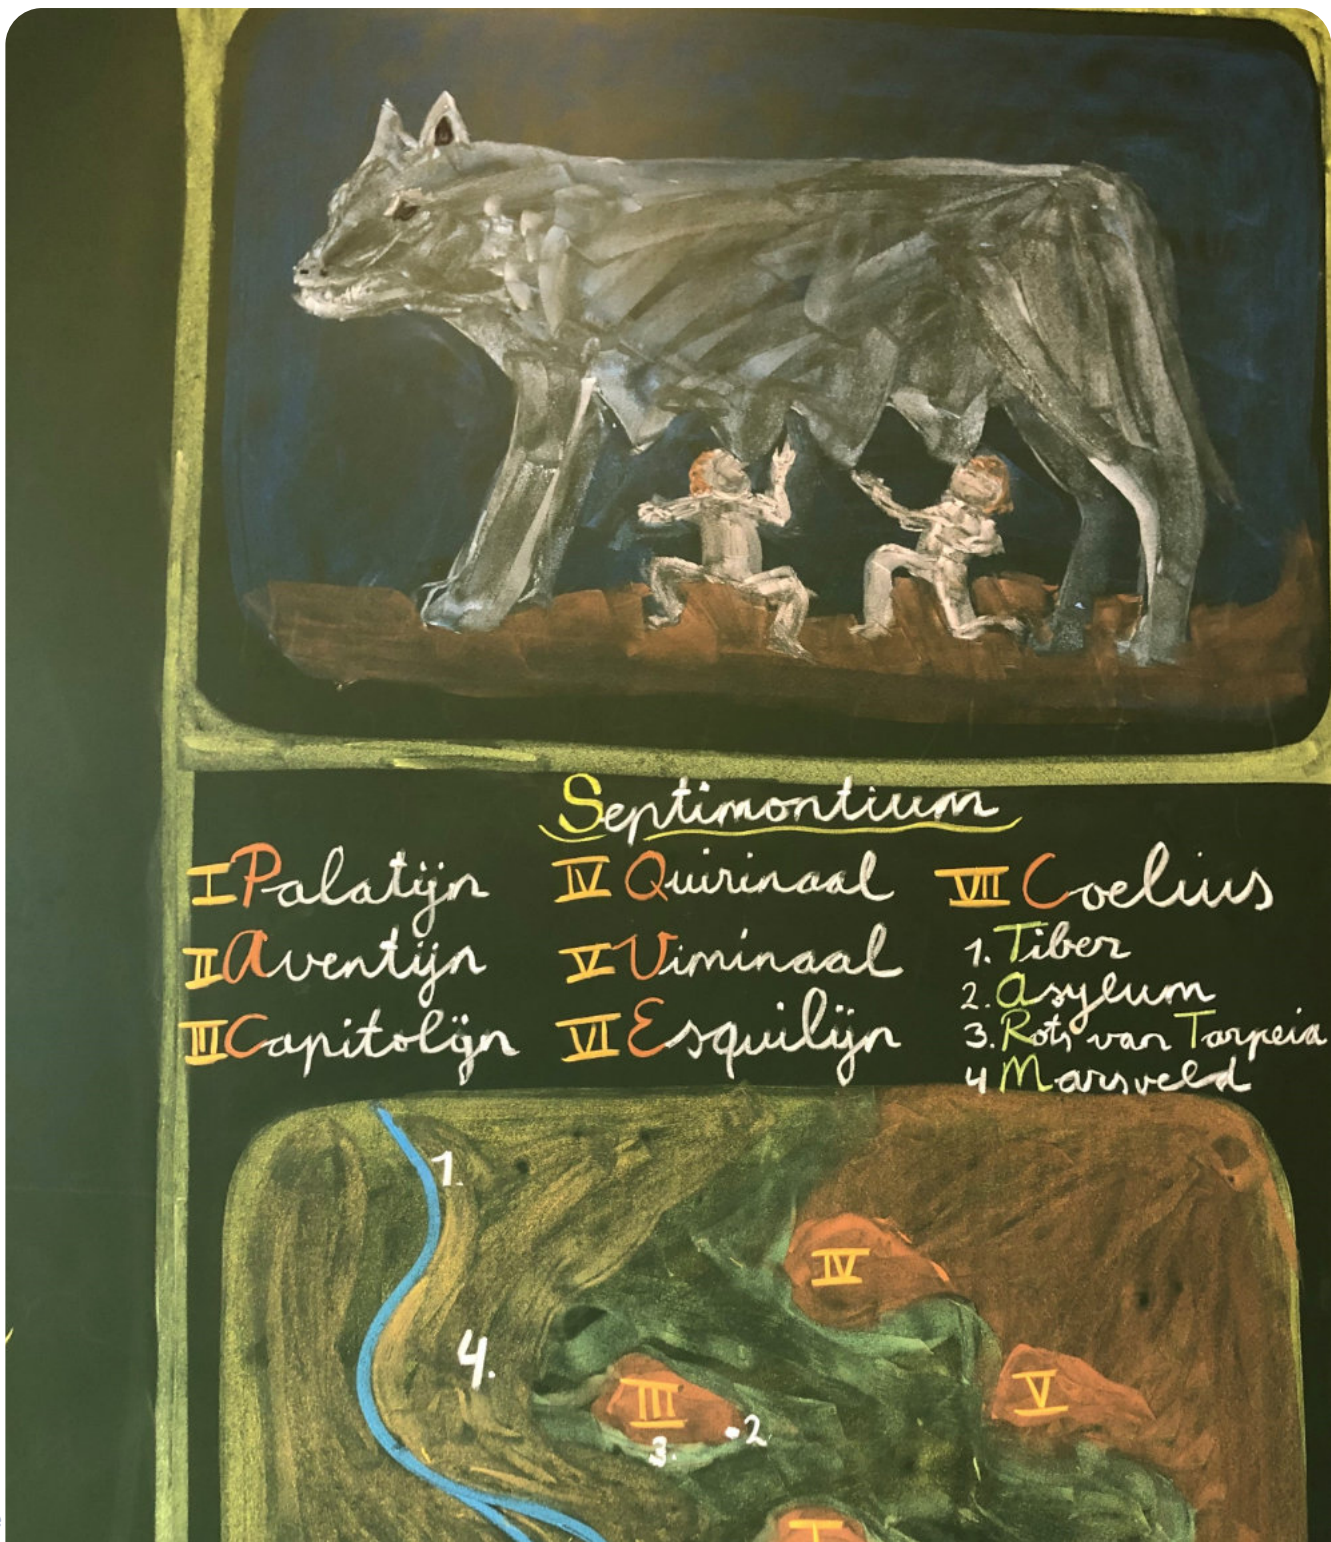 Septimontium
I Palatijn
II Aventijn
III Capitolijn
IV Quirinaal
V Viminaal
VI Esquilijn
VII Coelius
1. Tiber
2. Asylum
3. Rots van Tarpeia
4 Marsveld
1.
IV
4.
V
III
2
3.
I